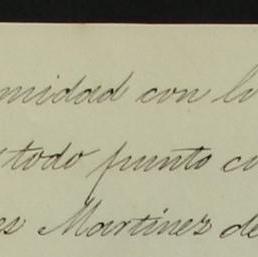 midad con l
todo punto c
es Martinez de